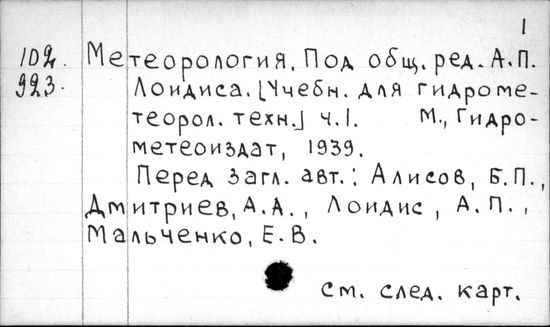 1
102. Метеорология. Под общ. ред. А.П.
923. Лоидиса. [Учебн. для гидроме-
теорол. техн.] ч. 1. М., Гидро-
метеоиздат, 1939.
Перед загл. авт.: Алисов, Б.П.,
Дмитриев, А.А., Лоидис, А.П.,
Мальченко, Е.В.
См. след. карт.